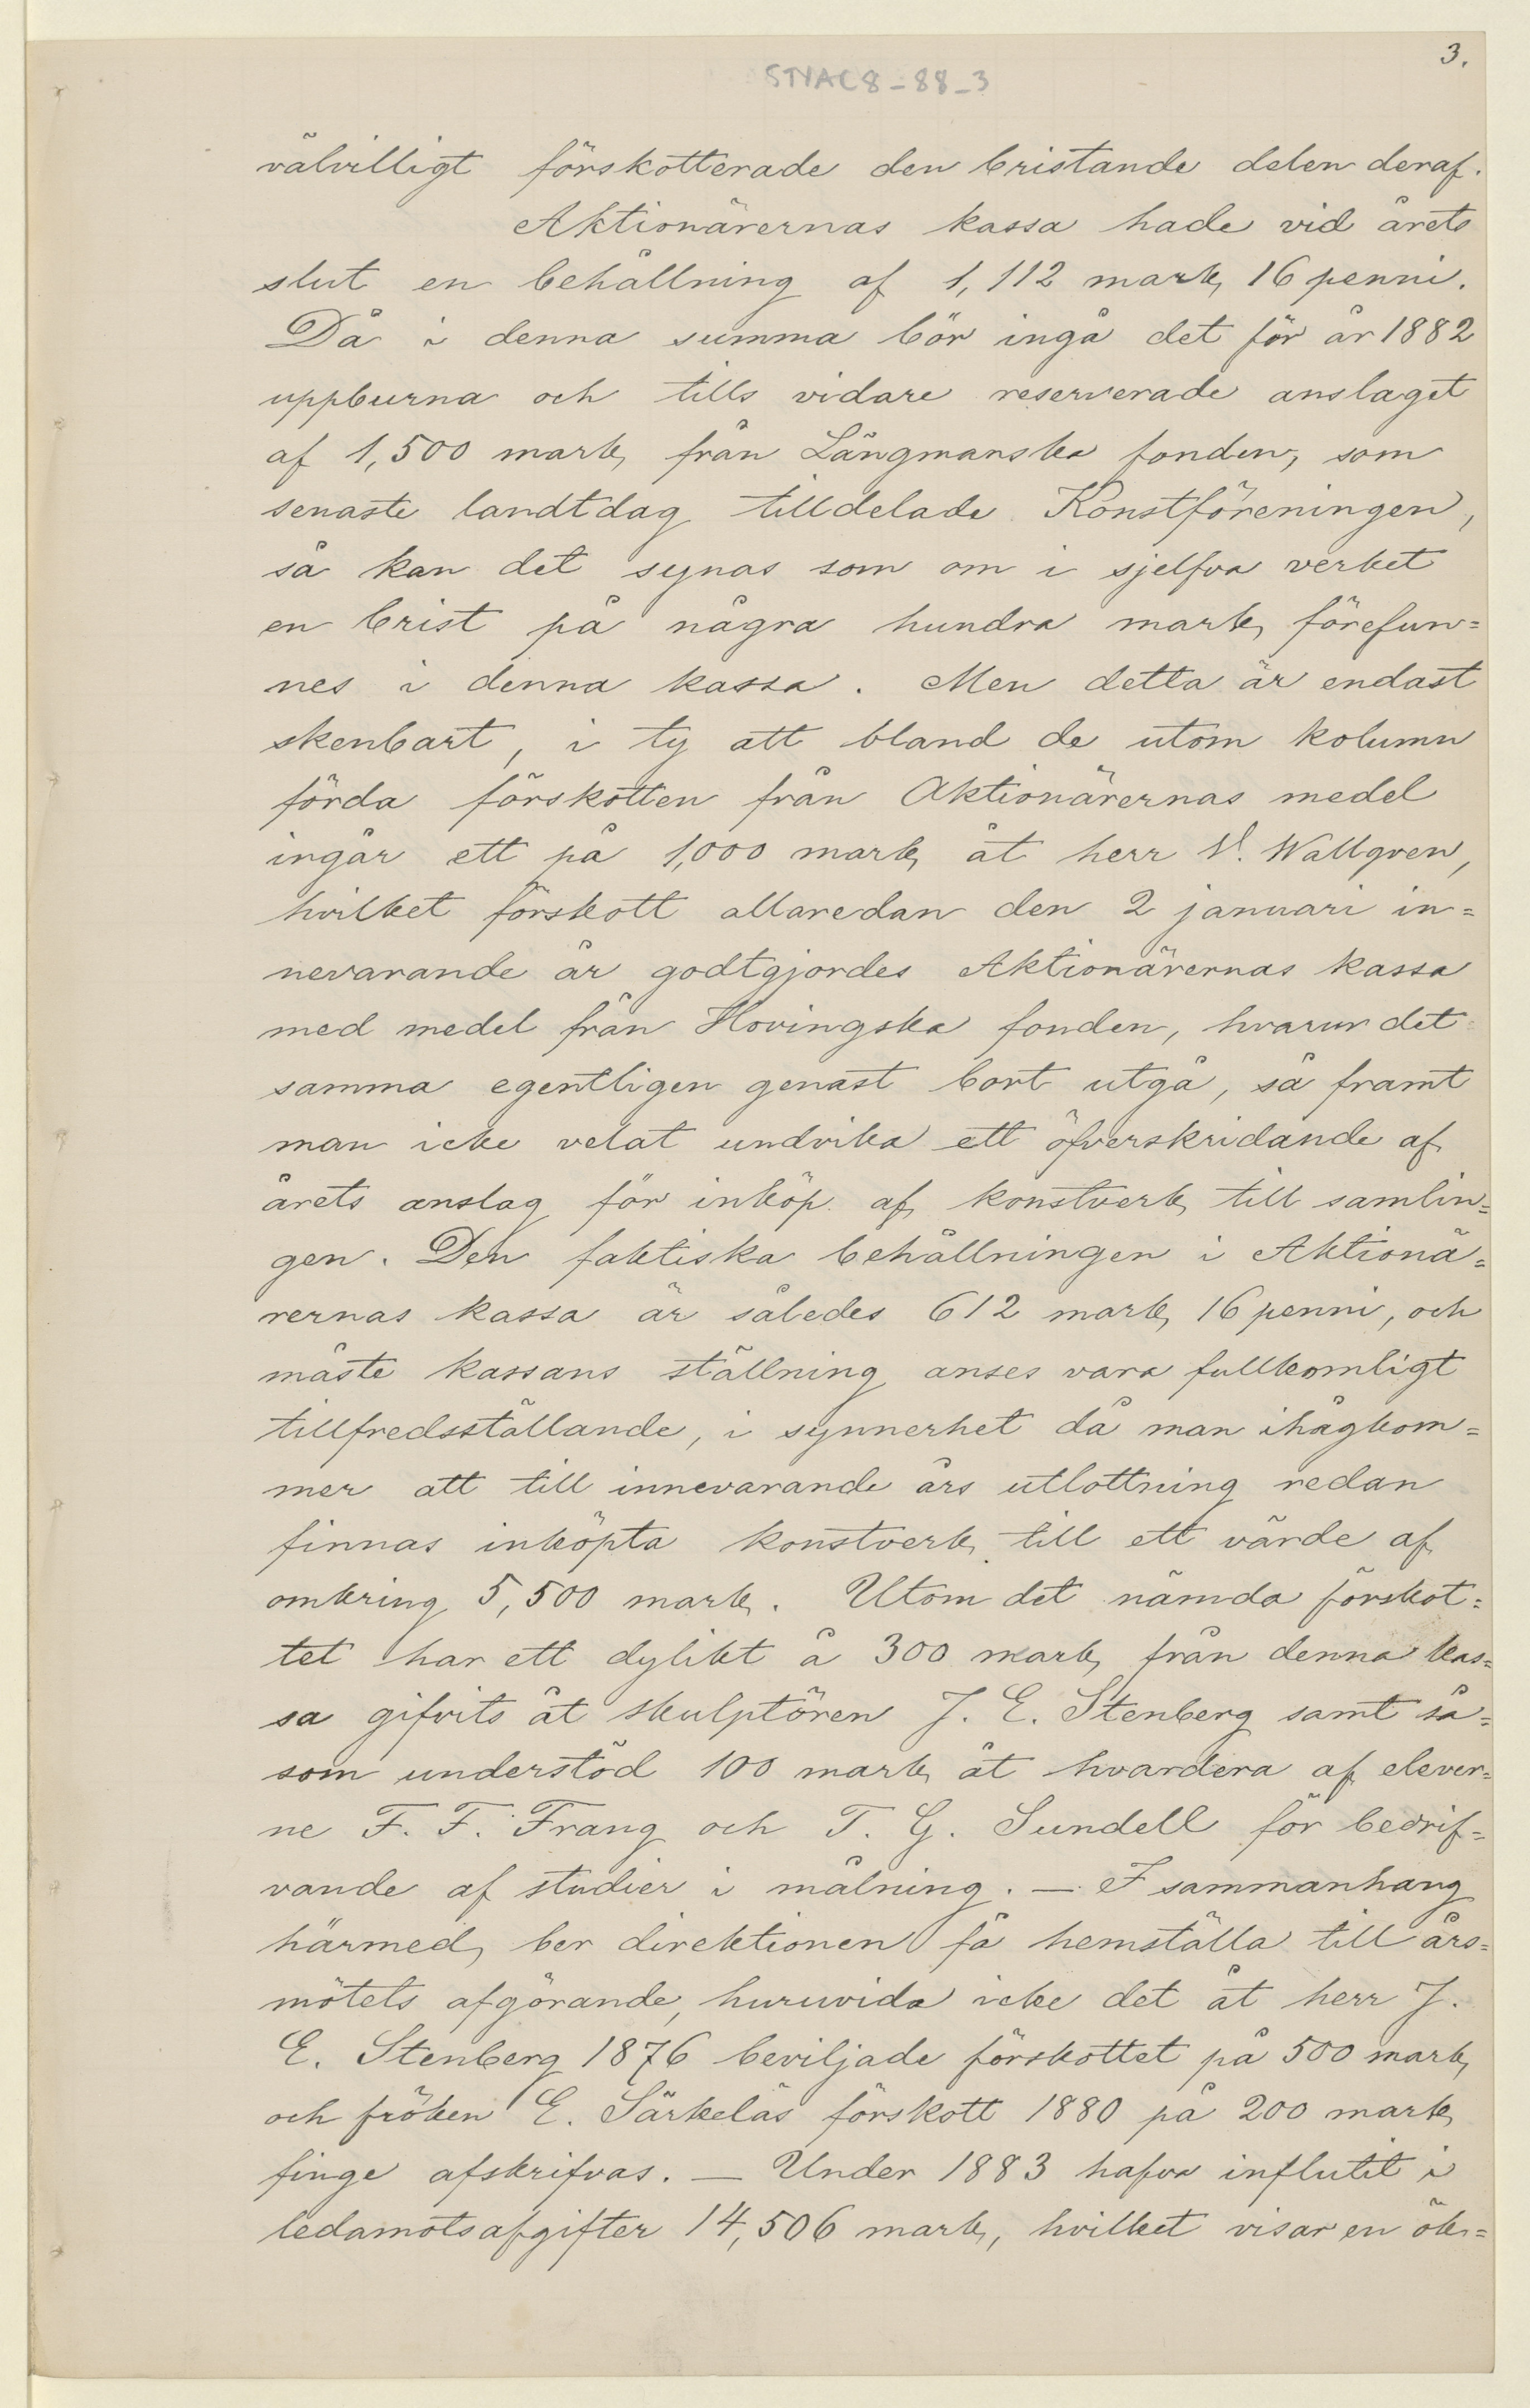 3.
STYAC8-88-3
välvilligt förskotterade den bristande delen deraf.
Aktionärernas kassa hade vid årets
slut en behållning af 1,112 mark, 16 penni.
Då i denna summa bör ingå det för år 1882
uppburna och tills vidare reserverade anslaget
af 1,500 mark, från Längmanska fonden, som
senaste landtdag tilldelade Konstföreningen,
så kan det synas som om i sjelfva verket
en brist på några hundra mark, förefun=
nes i denna kassa. Men detta är endast
skenbart, i ty att bland de utom kolumn
förda förskotten från Aktionärernas medel
ingår ett på 1,000 mark, åt herr V. Wallgren,
hvilket förskott allaredan den 2 januari in=
nevarande år godtgjordes Aktionärernas kassa
med medel från Hovingska fonden, hvarur det
samma egentligen genast bort utgå, så framt
man icke velat undvika ett öfverskridande af
årets anslag för inköp af konstverk, till samlin=
gen. Den faktiska behållningen i Aktionä=
rernas kassa är således 612 mark, 16 penni, och
måste kassans ställning anses vara fullkomligt
tillfredsställande, i synnerhet då man ihågkom=
mer att till innevarande års utlottning redan
finnas inköpta konstverk, till ett värde af
omkring 5,500 mark. Utom det nämda förskot=
tet har ett dylikt å 300 mark, från denna kas=
sa gifvits åt skulptören J. E. Stenberg samt så=
som understöd 100 mark, åt hvardera af elever=
ne F. F. Frang och T. G. Sundell för bedrif=
vande af studier i målning. — I sammanhang
härmed, ber direktionen få hemställa till års=
mötets afgörande, huruvida icke det åt herr J.
E. Stenberg 1876 beviljade förskottet på 500 mark,
och fröken E. Särkeläs förskott 1880 på 200 mark,
finge afskrifvas. — Under 1883 hafva influtit i
ledamotsafgifter 14,506 mark, hvilket visar en ök=